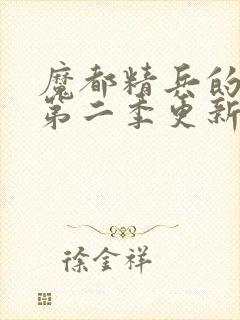 魔都精兵的
第二季更新
徐金祥